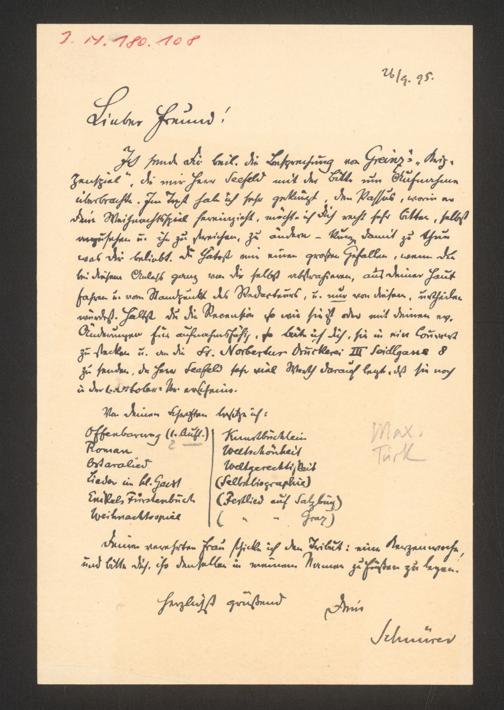 J. N. 180.108
26/9. 95.
Lieber Freund!
Ich sende Dir beil. die Besprechung von Greinz'
die mir Herr Seefeld mit der Bitte um Aufnahme
überbrachte. Im Text hab ich sehr gekürzt, den Passus, worin er
Dein Weihnachtsspiel hereinzieht, möcht ich Dich recht sehr bitten, selbst
u. ihn zu streichen, zu ändern – kurz damit zu thun
was Dir beliebt. Du thätest mir einen großen Gefallen, wenn Du
bei diesem Anlass ganz von Dir selbst abstrahieren, aus Deiner Haut
fahren u. vom Standpunkt des Redacteurs, u. nur von diesem, urtheilen
würdest. Hältst Du die Recension so wie sie ist oder mit Deinen
Änderungen für aufnahmsfähig, so bitte ich Dich, sie in ein Couvert
zu stecken u. an die St. Norbertus Druckerei III Seidlgasse 8
zu senden, da Herr Seefeld sehr viel Werth darauf legt, dass sie noch
in der 1. October Nr erscheine.
Von Deinen besitze ich:
Offenbarung (1. Aufl.) Kunstbüchlein
Roman Weltschönheit
Ostaralied Weltgerechtigkeit
Lieder in bl. Gaert (Selbstbiographie)
Enikels Fürstenbuch (Festlied auf Salzburg)
Weihnachtsspiel ( " " Graz)
Max.
Türk
Deiner verehrten Frau schicke ich den Tribut: eine
und bitte Dich, ihr denselben in meinem Namen zu Füßen zu legen.
Herzlichst grüßend Dein
Schnürer